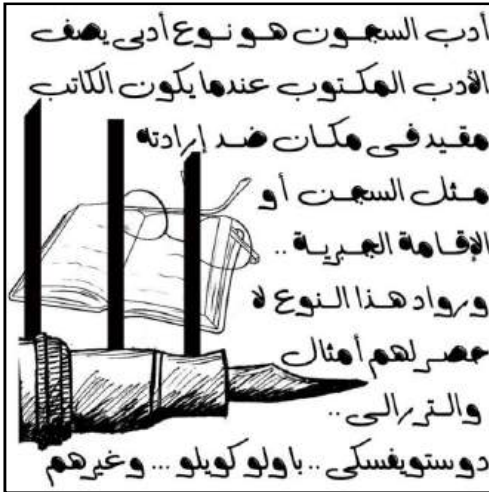 أدب السجون هو نوع أدبى يصف
الأدب المكتوب عندما يكون الكاتب
مقيد فى مكان ضد إرادته
مثل السجن أو
الإقامة الجبرية ..
ورواد هذا النوع لا
حصر لهم أمثال
والتر رالى ..
دوستويفسكى .. باولو كويلو ... وغيرهم